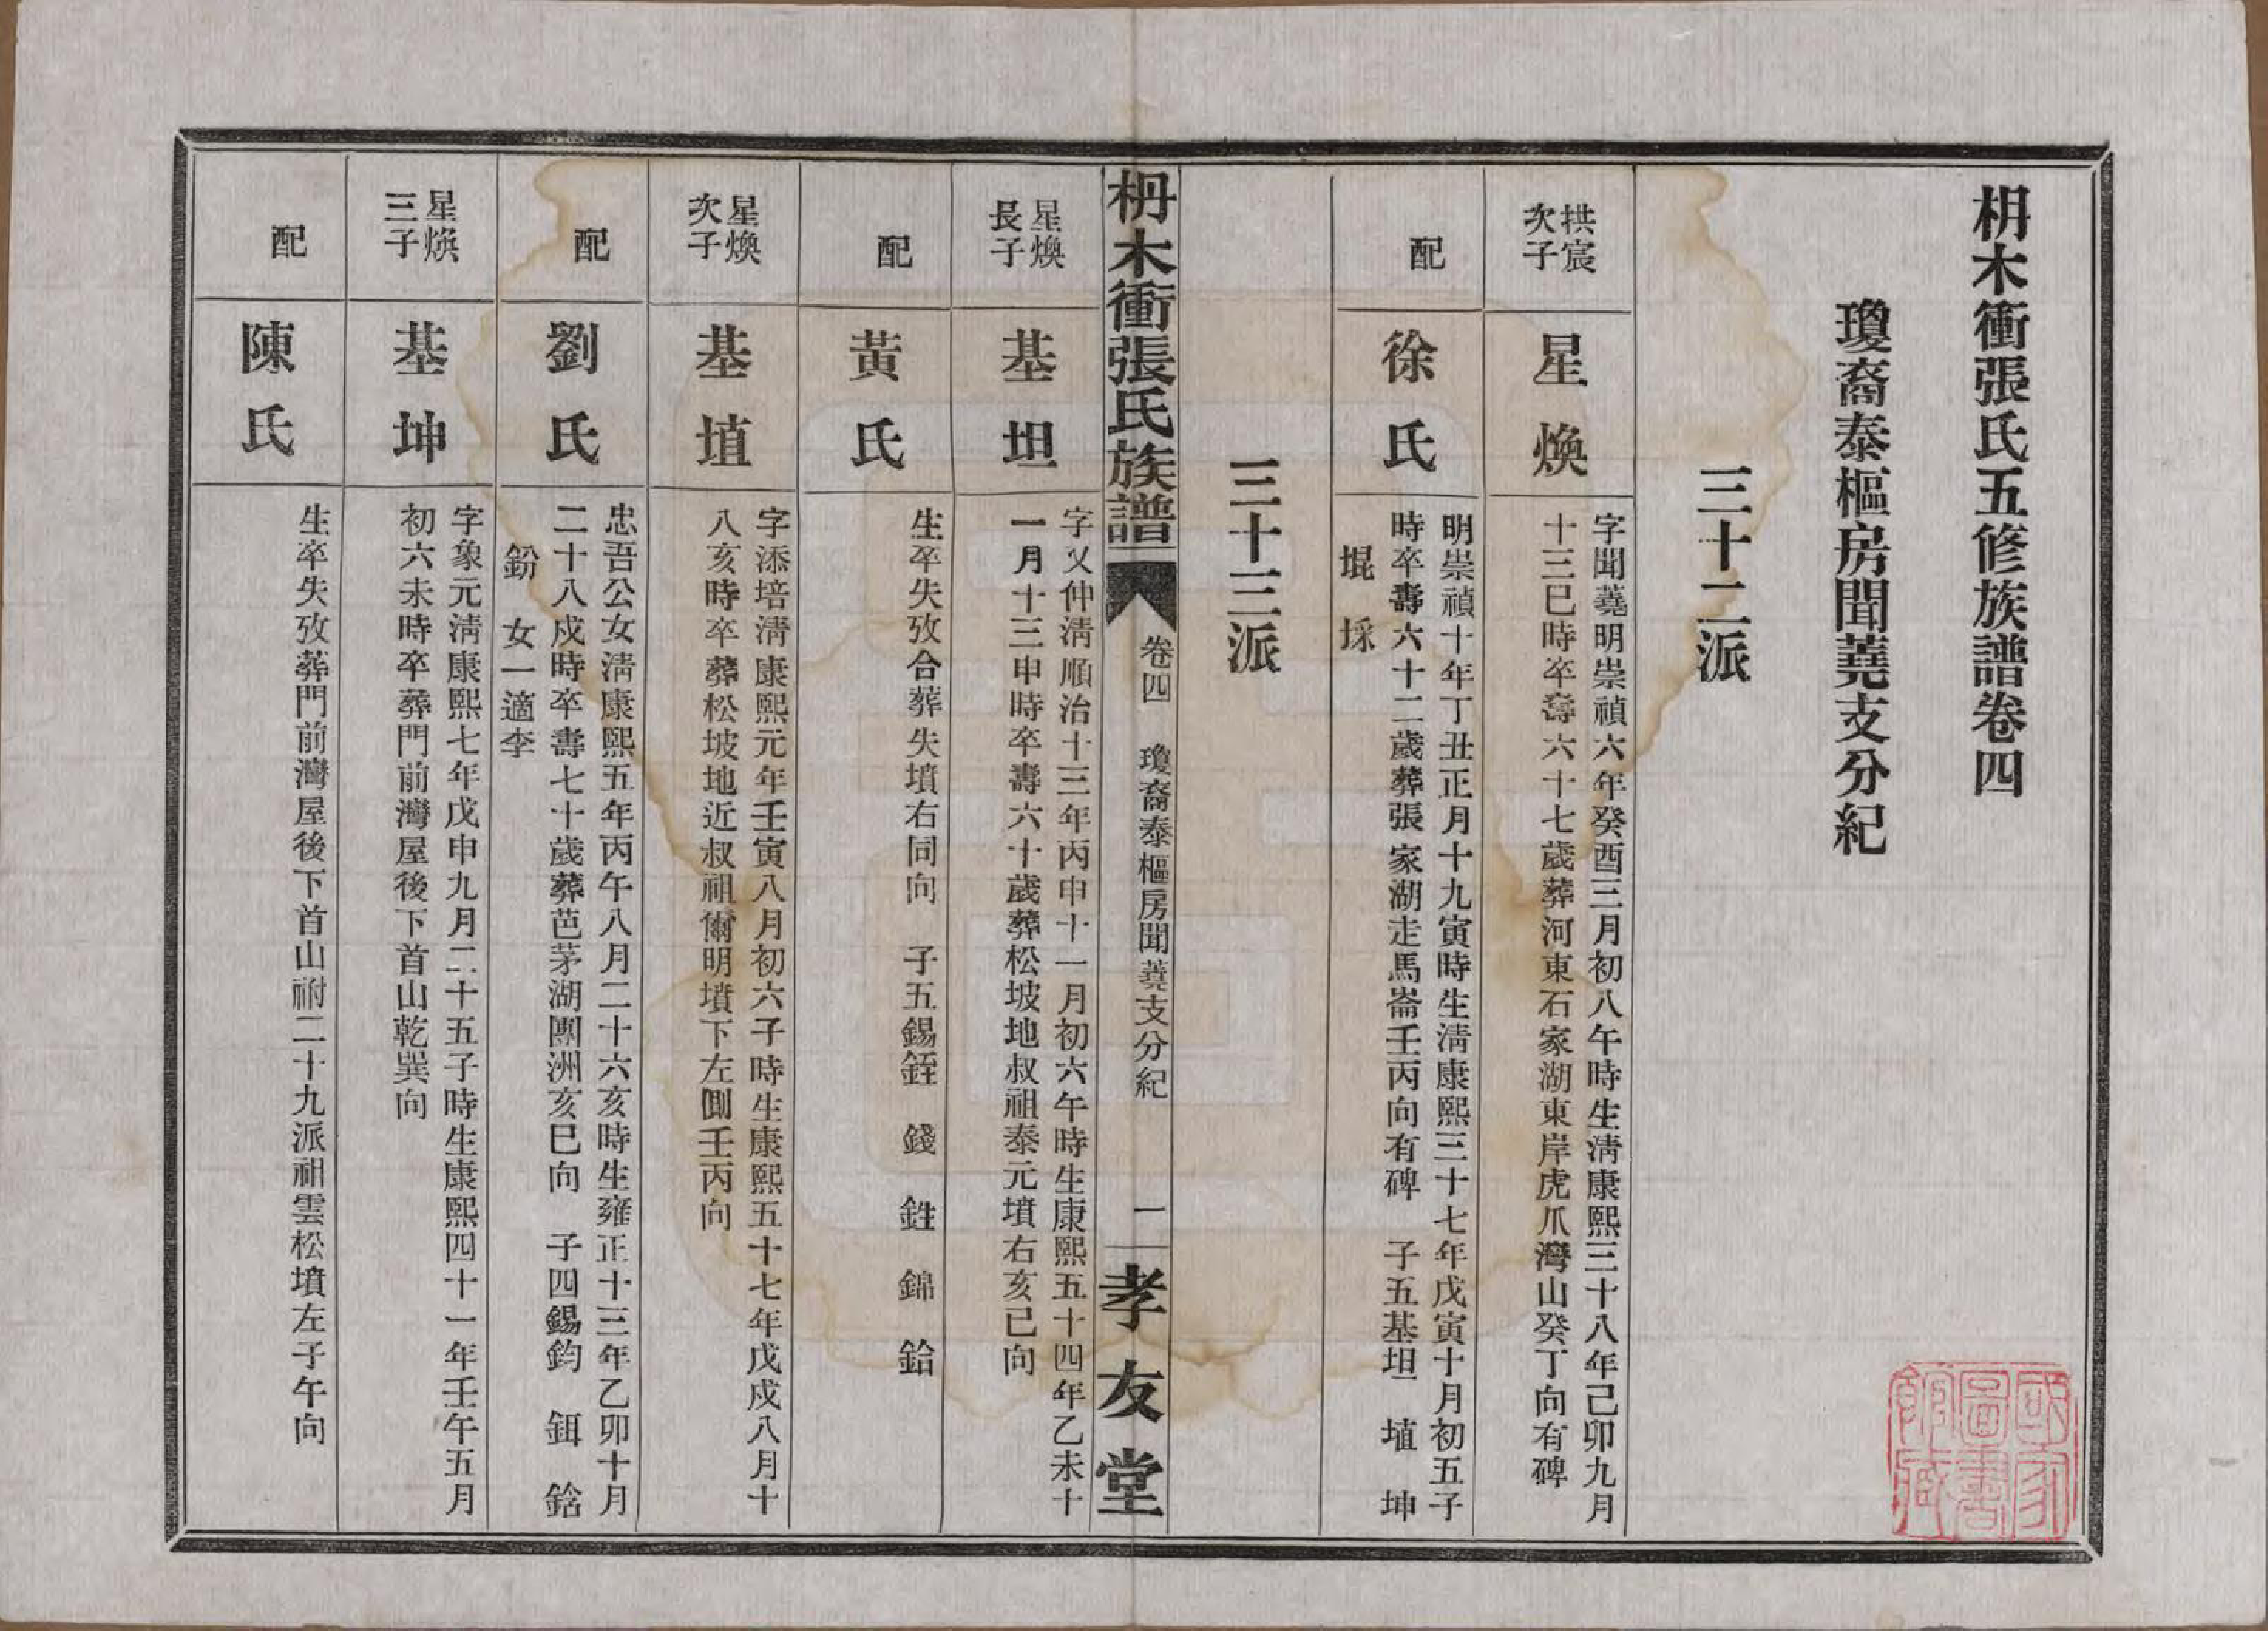 枬木衝張氏五修族譜卷四
瓊裔泰樞房聞蕘支分紀
三十二派
拱宸
次子
星煥
字聞蕘明崇禎六年癸酉三月初八午時生淸康熙三十八年己卯九月
十三巳時卒壽六十七歲葬河東石家湖東岸虎爪灣山癸丁向有碑
配
徐氏
明崇禎十年丁丑正月十九寅時生淸康熙三十七年戊寅十月初五子
時卒壽六十二歲葬張家湖走馬崙壬丙向有碑 子五基坦 埴 坤
堒 埰
三十三派
枬木衝張氏族譜 卷四 瓊裔泰樞房聞蕘支分紀 一 孝友堂
星煥
長子
基坦
字乂仲淸順治十三年丙申十一月初六午時生康熙五十四年乙未十
一月十三申時卒壽六十歲葬松坡地叔祖泰元墳右亥巳向
配
黃氏
生卒失攷合葬失墳右同向 子五錫銍 錢 鉎 錦 鉿
星煥
次子
基埴
字添培淸康熙元年壬寅八月初六子時生康熙五十七年戊戌八月十
八亥時卒葬松坡地近叔祖爾明墳下左側壬丙向
配
劉氏
忠吾公女淸康熙五年丙午八月二十六亥時生雍正十三年乙卯十月
二十八戌時卒壽七十歲葬芭茅湖團洲亥巳向 子四錫鈞 鉺 鋡
鈖 女一適李
星煥
三子
基坤
字象元淸康熙七年戊申九月二十五子時生康熙四十一年壬午五月
初六未時卒葬門前灣屋後下首山乾巽向
配
陳氏
生卒失攷葬門前灣屋後下首山祔二十九派祖雲松墳左子午向
國家
圖書
館藏